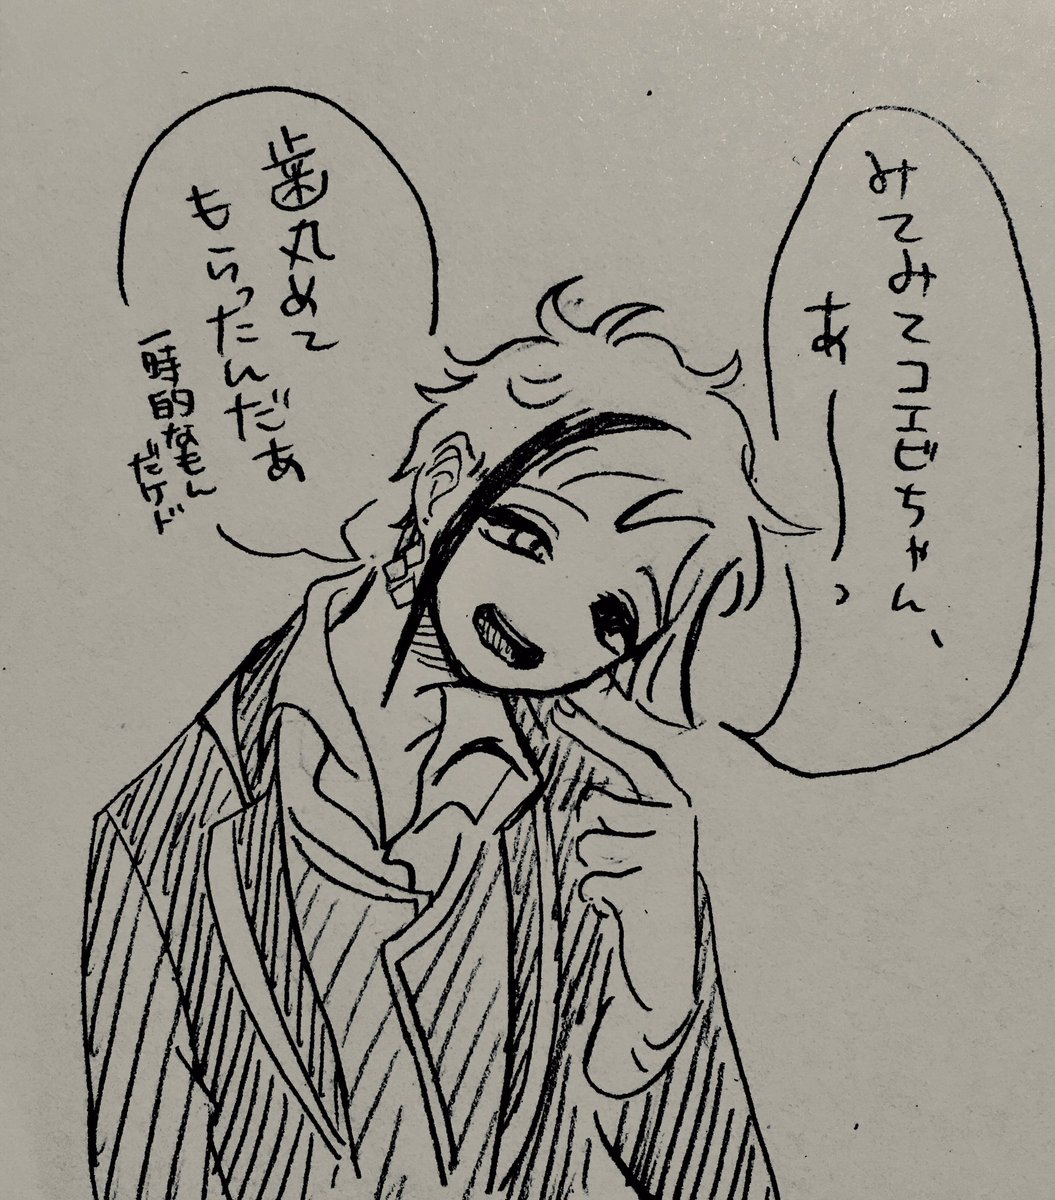 みてみてコエビちゃん、
あーーっ
歯丸めて
もらったんだぁ
一時的なもん
だケド